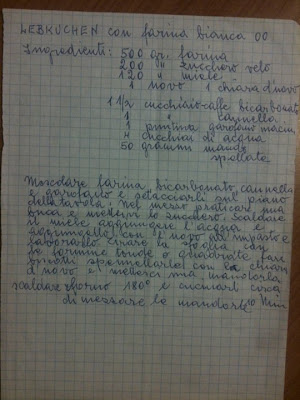 LEBKUCHEN con farina bianca 00
Ingredienti: 500 gr. farina
200 " zucchero velo
120 " miele
1 uovo 1 chiara d'uovo
1 1/2 cucchiaio caffe bicarbonato
1 " cannella
1 puntina garofano macin.
4 cucchiai di acqua
50 grammi mandor
spellate
Mescolare farina, bicarbonato, cannella
e garofano e setacciarli sul piano
della tavola. Nel mezzo praticare una
buca e metterci lo zucchero. Scaldare
il miele, aggiungere l'acqua e
aggiungerlo con l'uovo all'impasto e
lavorarlo. Tirare la sfoglia e
formine tonde o quadrate
spennellarle con chiara
d'uovo e metterci una mandorla
scaldare il forno 180° e cucinarli circa 10 Min
dimezzare le mandorle